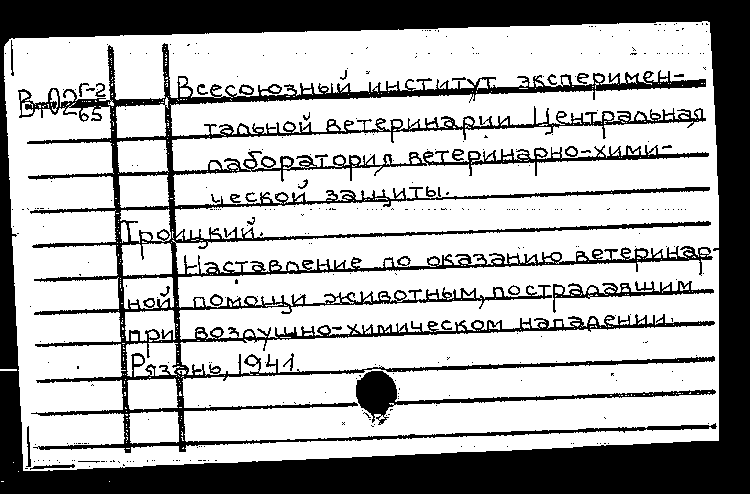 В-02 Г-2/65 Всесоюзный институт эксперимен-
тальной ветеринарии Центральная
лаборатория ветеринарно-хими-
ческой защиты.
Троицкий.
Наставление по оказанию ветеринар-
ной помощи животным, пострадавшим
при воздушно-химическом нападении.
Рязань, 1941.